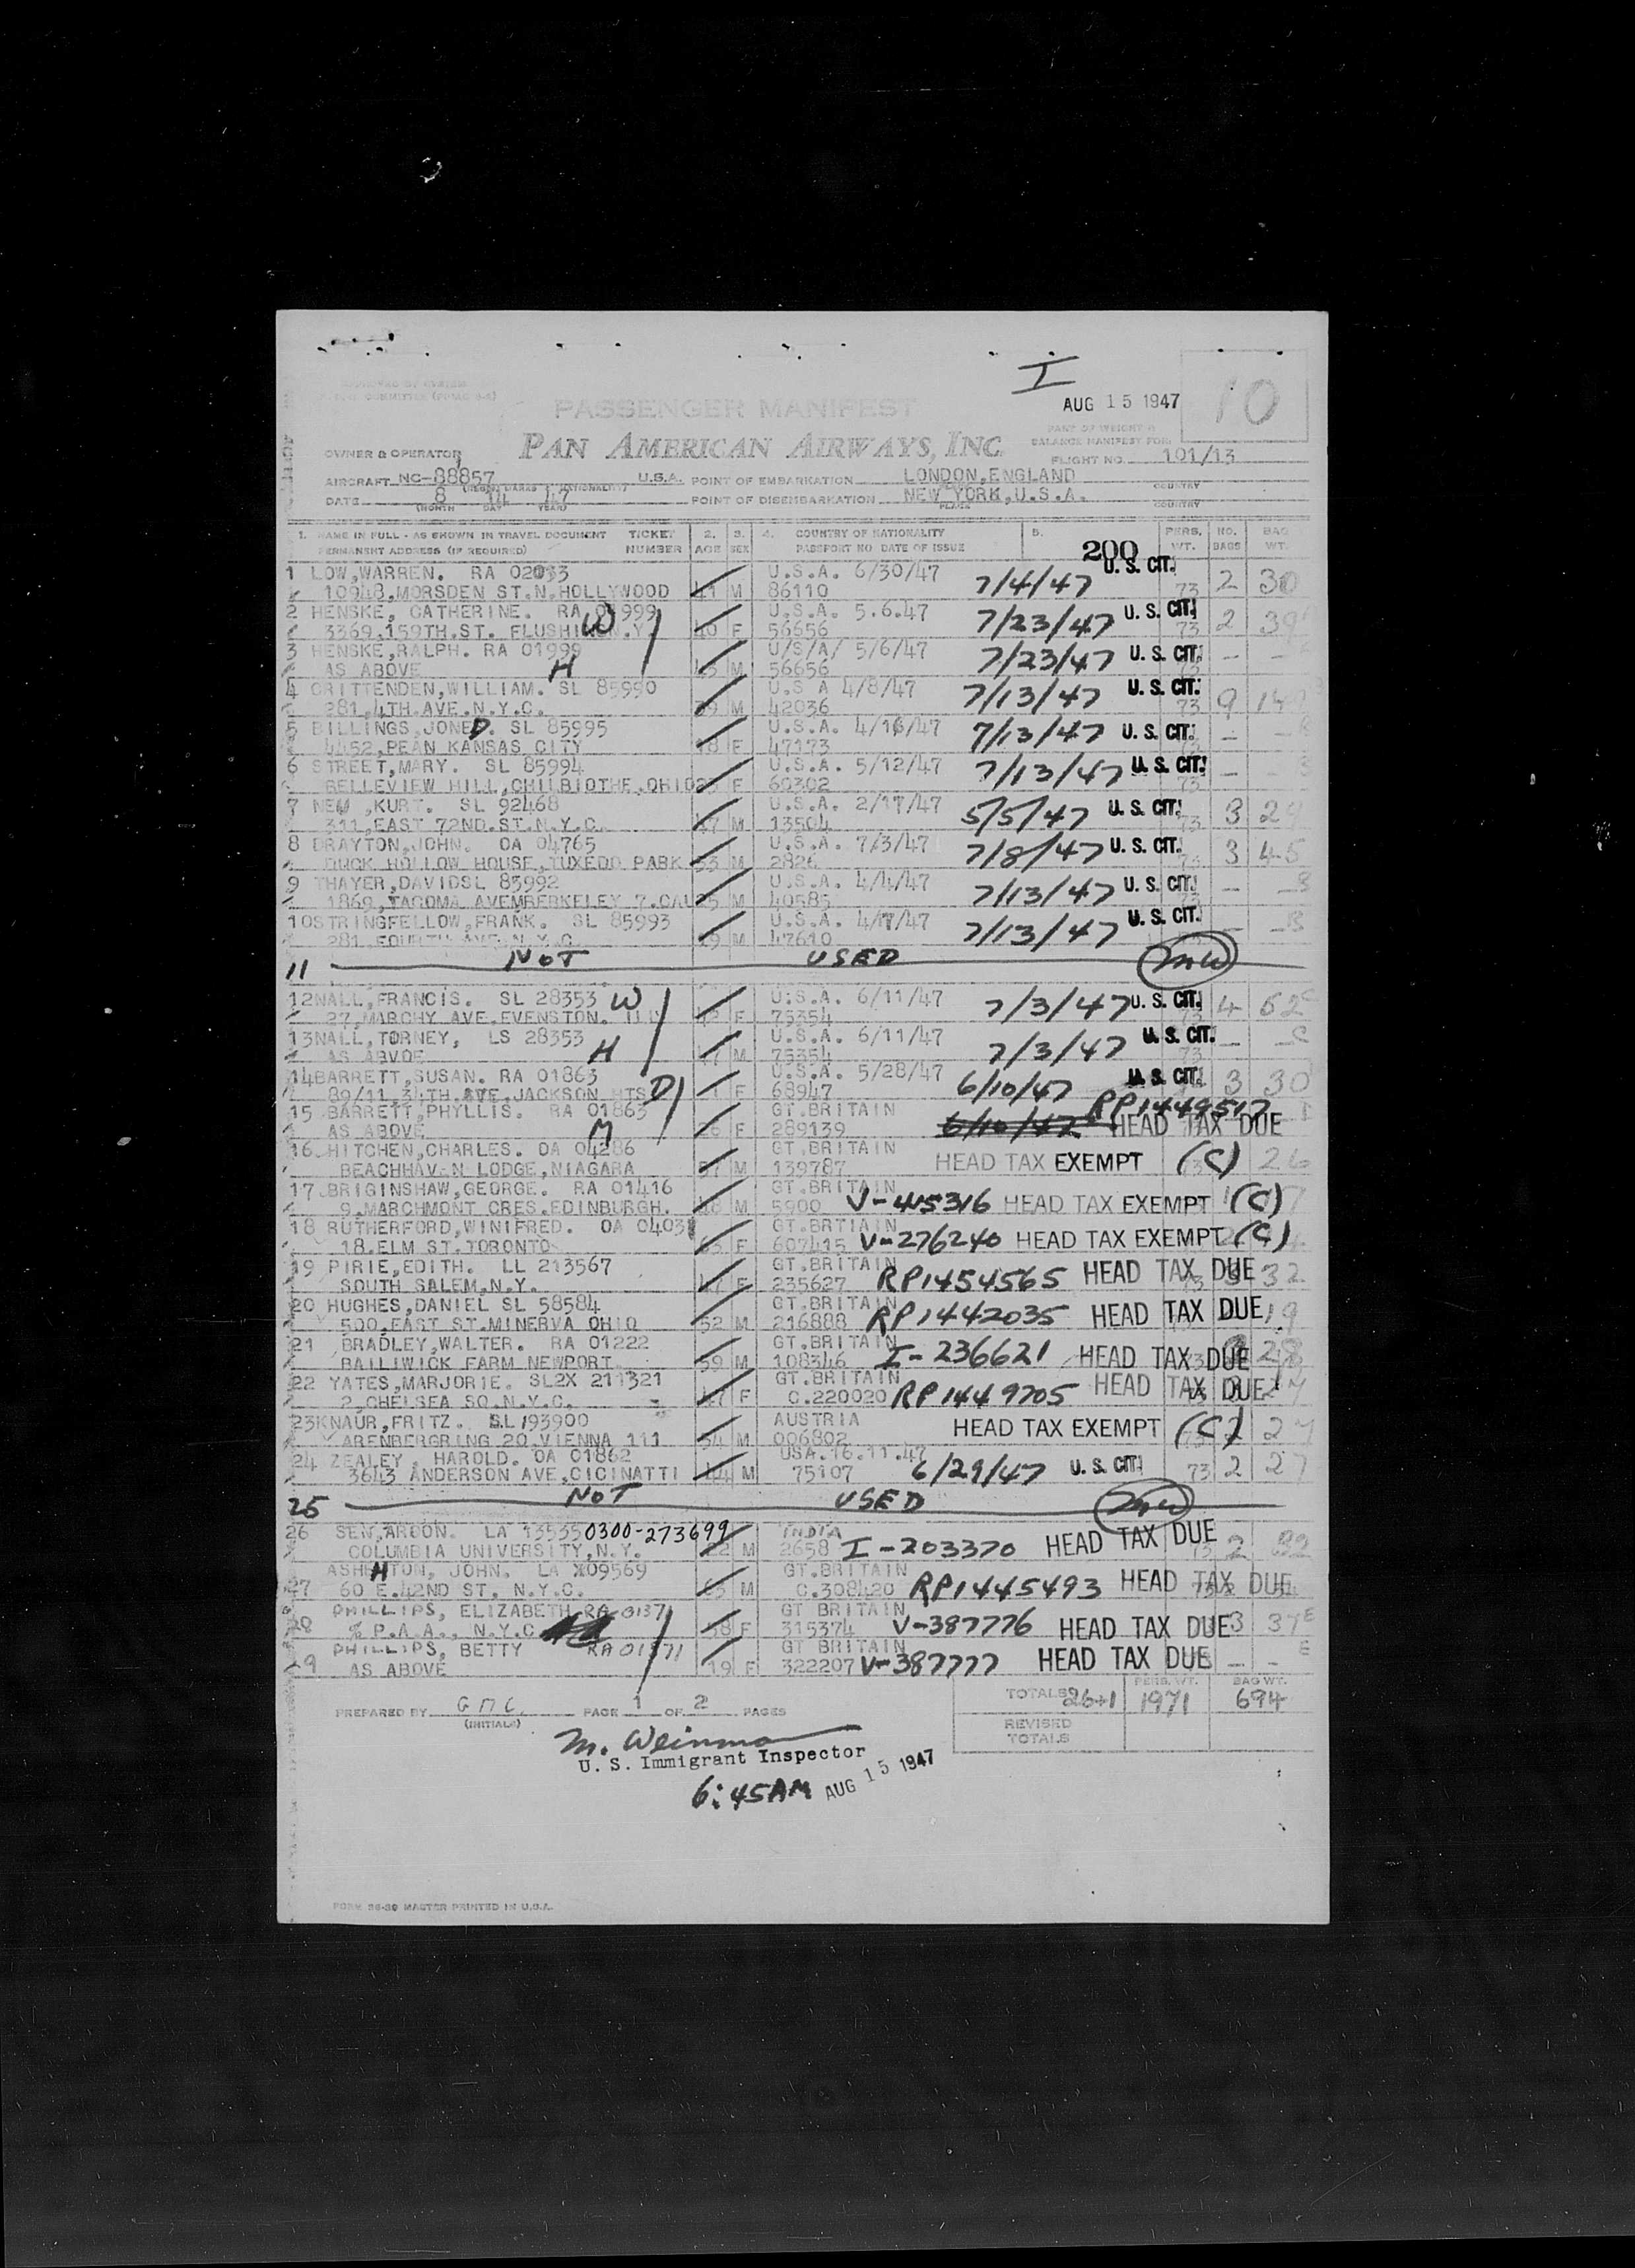 I
AUG 15 1947
10
PASSENGER MANIFEST
PAN AMERICAN AIRWAYS, INC.
PART OF WEIGHT &
BALANCE MANIFEST FOR:
OWNER & OPERATOR
FLIGHT NO. 101/13
AIRCRAFT NC-88857 U.S.A. POINT OF EMBARKATION LONDON, ENGLAND COUNTRY
DATE 8 14 47 POINT OF DISEMBARKATION NEW YORK, U.S.A.
(MONTH DAY YEAR) PLACE COUNTRY
1. NAME IN FULL - AS SHOWN IN TRAVEL DOCUMENT TICKET 2. 3. 4. COUNTRY OF NATIONALITY 5. PERS. NO. BAG
PERMANENT ADDRESS (IF REQUIRED) NUMBER AGE SEX PASSPORT NO DATE OF ISSUE 200 WT. BAGS WT.
1 LOW, WARREN. RA 02033 U.S.A. 6/30/47 U. S. CIT.
10948, MORSDEN ST. N. HOLLYWOOD M 86110 7/4/47 73 2 30
2 HENSKE, CATHERINE. RA 01999 U.S.A. 5.6.47 U. S. CIT.
3369, 159TH. ST. FLUSHING N.Y. W 40 F 56656 7/23/47 73 2
3 HENSKE, RALPH. RA 01999 U/S/A/ 5/6/47 7/23/47 U. S. CIT. - -
AS ABOVE H M 56656
4 CRITTENDEN, WILLIAM. SL 85990 U.S A 4/8/47 7/13/47 U. S. CIT.
281, 4TH. AVE. N.Y.C. M 42036 73 9
5 BILLINGS, JONED. SL 85995 U.S.A. 4/16/47 7/13/47 U. S. CIT. - -
4452, PEAN KANSAS CITY F 47173
6 STREET, MARY. SL 85994 U.S.A. 5/12/47 7/13/47 U. S. CIT. - -
BELLEVIEW HILL, CHILBIOTHE, OHIO F 60302 73
7 NEW, KURT. SL 92468 U.S.A. 2/17/47 5/5/47 U. S. CIT.
311, EAST 72ND. ST. N.Y.C. 47 M 13504 73 3
8 DRAYTON, JOHN. OA 04765 U.S.A. 7/3/47 7/8/47 U. S. CIT.
DUCK HOLLOW HOUSE, TUXEDO PARK 53 M 2826 3 45
9 THAYER, DAVIDSL 85992 U.S.A. 4/4/47 7/13/47 U. S. CIT. - -
1869, TACOMA AVEMBERKELEY 7. CAL M 40585
10STRINGFELLOW, FRANK. SL 85993 U.S.A. 4/17/47 7/13/47 U. S. CIT. - -
281 FOURTH AVE N.Y.C. M 47610
11 NOT USED mw
12NALL, FRANCIS. SL 28353 W U.S.A. 6/11/47 7/3/47 U. S. CIT. 4 62
27, MARCHY AVE. EVENSTON. ILL F 75354
13NALL, TORNEY, LS 28353 U.S.A. 6/11/47 7/3/47 U. S. CIT. - -
AS ABVOE H 47 M 75354 73
14BARRETT, SUSAN. RA 01863 U.S.A. 5/28/47 6/10/47 U. S. CIT. 3 30
89/11, 34TH. AVE. JACKSON HTS D F 68947
15 BARRETT, PHYLLIS. RA 01863 GT. BRITAIN RP1449517
AS ABOVE M 26 F 289139 6/10/47 HEAD TAX DUE
16 HITCHEN, CHARLES. OA 04286 GT. BRITAIN
BEACHHAVEN LODGE, NIAGARA 57 M 139787 HEAD TAX EXEMPT (C) 26
17 BRIGINSHAW, GEORGE. RA 01416 GT. BRITAIN
9, MARCHMONT CRES. EDINBURGH. M 5900 V-415316 HEAD TAX EXEMPT (C)
18 RUTHERFORD, WINIFRED. OA 0403 GT. BRTIAIN
18. ELM ST. TORONTO F 607415 V-276240 HEAD TAX EXEMPT (C)
19 PIRIE, EDITH. LL 213567 GT. BRITAIN
SOUTH SALEM, N.Y. F 235627 RP1454565 HEAD TAX DUE 32
20 HUGHES, DANIEL SL 58584 GT. BRITAIN
500, EAST ST. MINERVA OHIO 52 M 216888 RP1442035 HEAD TAX DUE 19
21 BRADLEY, WALTER. RA 01222 GT. BRITAIN
BAILIWICK FARM NEWPORT 59 M 108346 I-236621 HEAD TAX DUE 28
22 YATES, MARJORIE. SL2X 211321 GT. BRITAIN
2, CHELSEA SQ. N.Y.C. 47 F C.220020 RP1449705 HEAD TAX DUE
23KNAUR, FRITZ. SL 193900 AUSTRIA
ARENBERGRING 20, VIENNA 111 54 M 006802 HEAD TAX EXEMPT (C)
24 ZEALEY, HAROLD. OA 01862 USA. 16.11.47
3643 ANDERSON AVE, CICINATTI 44 M 75107 6/29/47 U. S. CIT. 73 2 27
25 NOT USED mw
26 SEN, AROON. LA 135350300-273699 INDIA
COLUMBIA UNIVERSITY, N.Y. 22 M 2658 I-203370 HEAD TAX DUE 2
ASHHTON, JOHN. LA X09569 GT. BRITAIN
27 60 E. 42ND ST, N.Y.C. 63 M C.308420 RP1445493 HEAD TAX DUE
28 PHILLIPS, ELIZABETH RA 01371 GT BRITAIN
% P.A.A., N.Y.C. F 315374 V-387776 HEAD TAX DUE 3 37 E
PHILLIPS, BETTY RA 01371 GT BRITAIN
9 AS ABOVE 19 F 322207 V-387777 HEAD TAX DUE - - E
PREPARED BY G M C. PAGE 1 OF 2 PAGES
(INITIALS)
PERS. WT. BAG WT.
TOTALS 26+1 1971 694
REVISED
TOTALS
M. Weinman
U. S. Immigrant Inspector
6:45AM AUG 15 1947
FORM 26-30 MASTER PRINTED IN U.S.A.